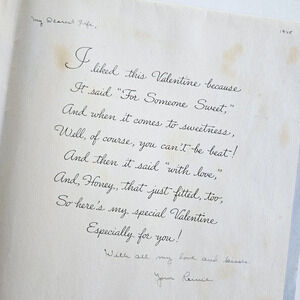 My Dearest Fifi,
I liked this Valentine because
It said "For Someone Sweet,"
And when it comes to sweetness,
Well, of course, you can't be beat!
And then it said "with love,"
And, Honey, that just fitted, too,
So here's my special Valentine
Especially for you!
With all my love and
Your